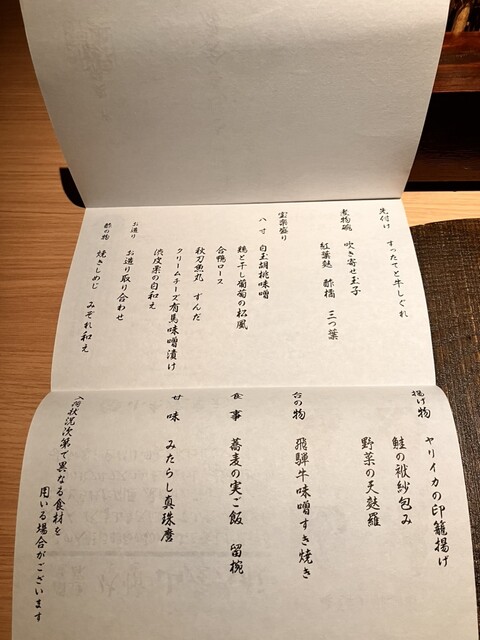 先付け　すったてと牛しぐれ
煮物碗　吹き寄せ玉子
紅葉麩　酢橘　三つ葉
宝楽盛り
八寸　白玉胡桃味噌
鶏と干し葡萄の松風
合鴨ロース
秋刀魚丸　ずんだ
クリームチーズ有馬味噌漬け
渋皮栗の白和え
お造り　お造り取り合わせ
酢の物　焼きしめじ　みぞれ和え
揚げ物　ヤリイカの印籠揚げ
鮭の袱紗包み
野菜の天麩羅
台の物　飛騨牛味噌すき焼き
食事　蕎麦の実ご飯　留椀
甘味　みたらし真珠麿
入荷状況次第で異なる食材を
用いる場合がございます